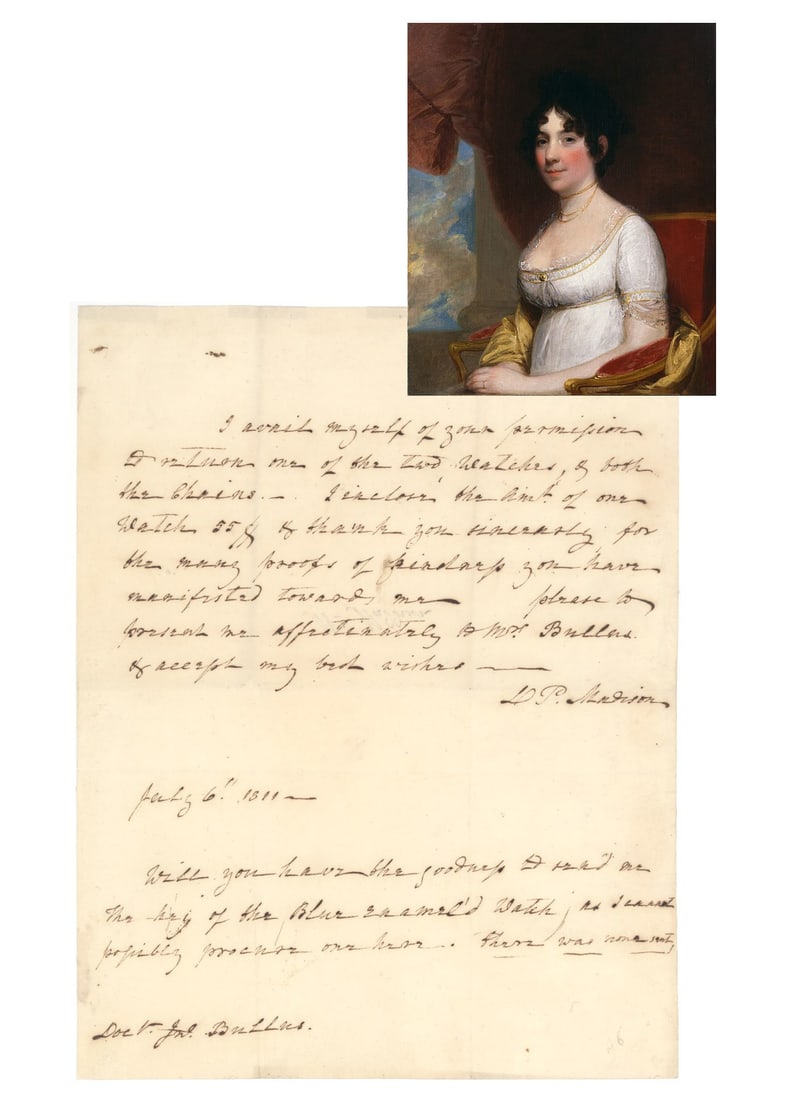 I avail myself of your permission
to return one of the two Watches, & both
the Chains. — I inclose the Amt. of one
Watch 55$ & thank you sincerely for
the many proofs of kindness you have
manifested towards me please to
present me affectinately to Mrs. Bullus.
& accept my best wishes —
D P. Madison
July 6th 1811 —
Will you have the goodness to send me
the key of the Blue enamel'd Watch, as I cannot
possibly procure one here. There was none sent,
Doctr. Jno. Bullus.